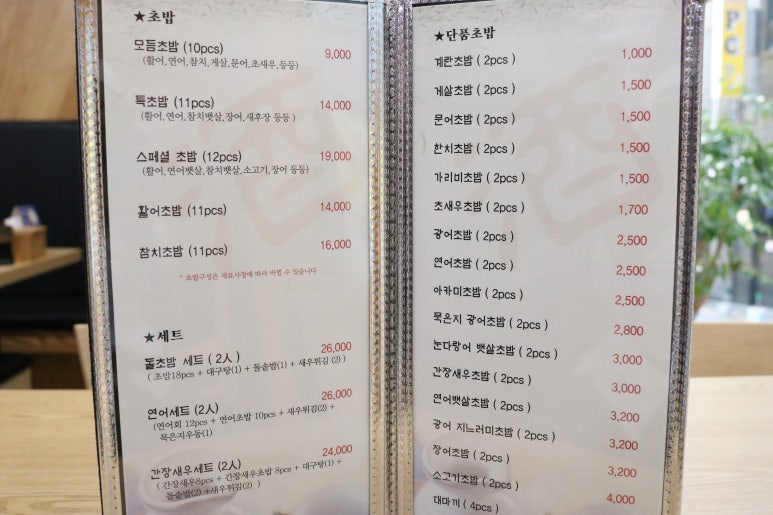 ★초밥
모듬초밥 (10pcs) 9,000
(활어,연어,참치,게살,문어,초새우,등등)
특초밥 (11pcs) 14,000
(활어,연어,참치뱃살,장어,새후장 등등 )
스페셜 초밥 (12pcs) 19,000
(활어,연어뱃살,참치뱃살,소고기,장어 등등)
활어초밥 (11pcs) 14,000
참치초밥 (11pcs) 16,000
* 초밥구성은 재료사정에 따라 바뀔 수 있습니다
★세트
돌초밥 세트 ( 2人 ) 26,000
( 초밥18pcs + 대구탕(1) + 돌솥밥(1) + 새우튀김 (2) )
연어세트 (2人) 26,000
(연어회 12pcs + 연어초밥 10pcs + 새우튀김(2) +
묵은지우동(1)
간장새우세트 (2人) 24,000
( 간장새우8pcs + 간장새우초밥 8pcs + 대구탕(1) +
돌솥밥(2) +새우튀김(2) )
★단품초밥
계란초밥 ( 2pcs ) 1,000
게살초밥 ( 2pcs ) 1,500
문어초밥 ( 2pcs ) 1,500
한치초밥 ( 2pcs ) 1,500
가리비초밥 ( 2pcs ) 1,500
초새우초밥 ( 2pcs ) 1,700
광어초밥 ( 2pcs ) 2,500
연어초밥 ( 2pcs ) 2,500
아카미초밥 ( 2pcs ) 2,500
묵은지 광어초밥 ( 2pcs ) 2,800
눈다랑어 뱃살초밥 ( 2pcs ) 3,000
간장새우초밥 ( 2pcs ) 3,000
연어뱃살초밥 ( 2pcs ) 3,200
광어 지느러미초밥 ( 2pcs ) 3,200
장어초밥 ( 2pcs ) 3,200
소고기초밥 ( 2pcs ) 4,000
대마끼 ( 4pcs )
酒
酒
PC